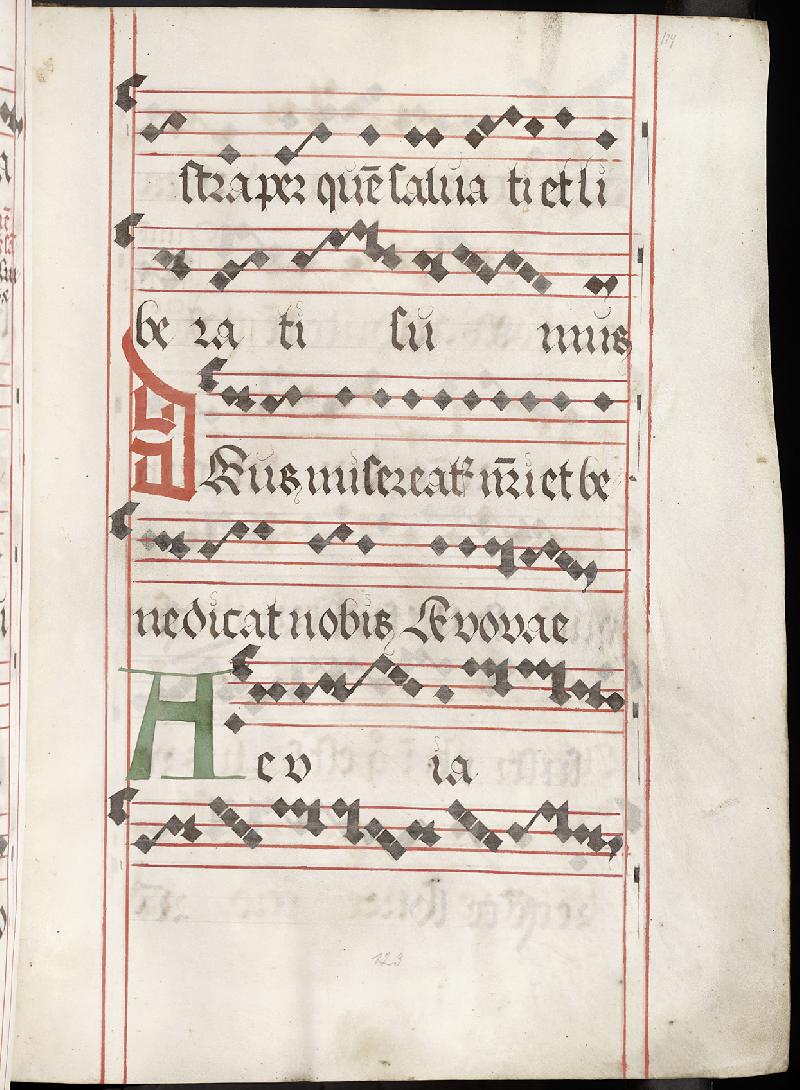 stra per quē salua ti et li
be ra ti su mus
DEus misereatr nr̄i et be
nedicat nobis Euouae
Aev ia
123